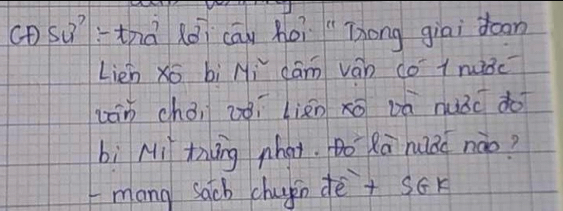 CĐ Sử : - trả lời câu hỏi "Trong giai đoạn
Liên Xô bị Mĩ cấm vận có 1 nước
vẫn chơi với Liên Xô và nước đó
bị Mĩ trừng phạt. Đó là nước nào?
- mang sách chuyên đề + SGK